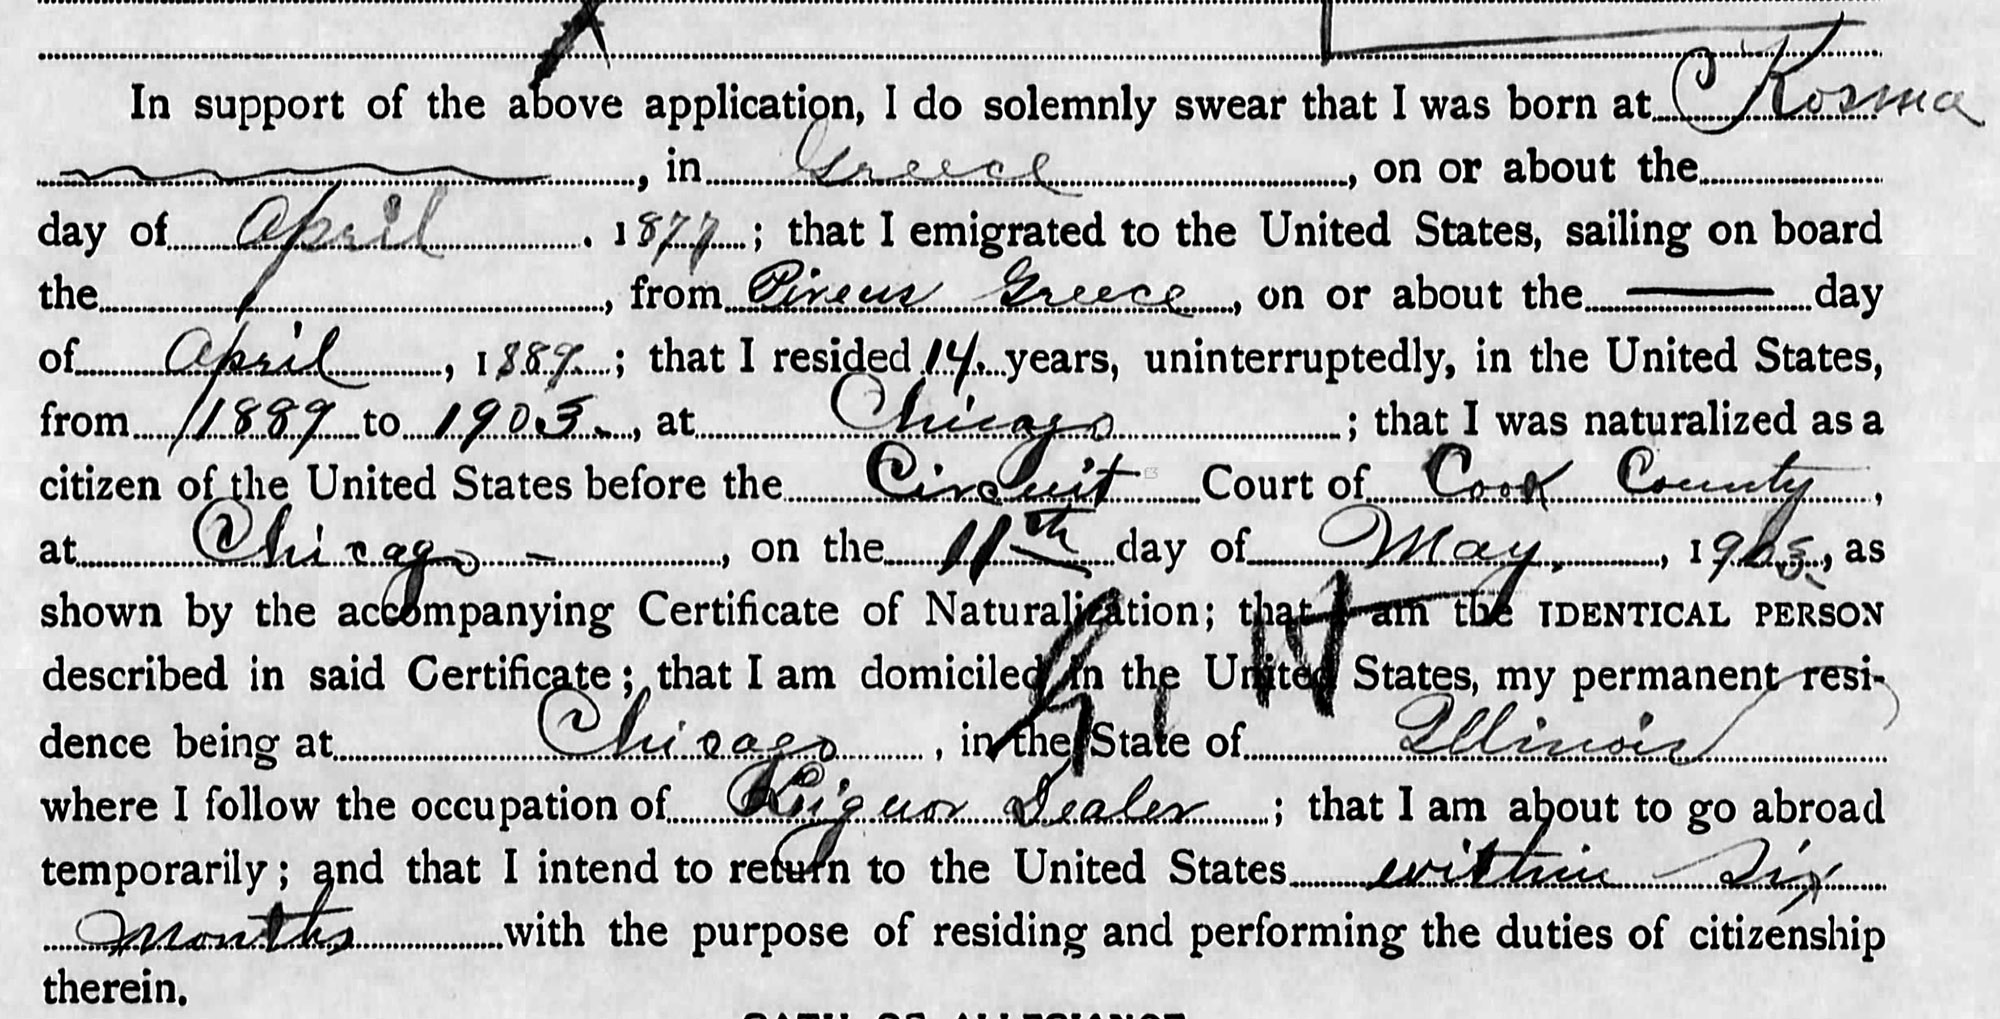 In support of the above application, I do solemnly swear that I was born at Kosma
, in Greece, on or about the
day of April. 1877; that I emigrated to the United States, sailing on board
the, from Pireus Greece, on or about the — day
of April, 1889; that I resided 14 years, uninterruptedly, in the United States,
from 1889 to 1903, at Chicago; that I was naturalized as a
citizen of the United States before the Circuit Court of Cook County,
at Chicago, on the 11th day of May, 1903, as
shown by the accompanying Certificate of Naturalization; that I am the IDENTICAL PERSON
described in said Certificate; that I am domiciled in the United States, my permanent resi-
dence being at Chicago, in the State of Illinois
where I follow the occupation of Liquor Dealer; that I am about to go abroad
temporarily; and that I intend to return to the United States within Six
Months with the purpose of residing and performing the duties of citizenship
therein.
OATH OF ALLEGIANCE